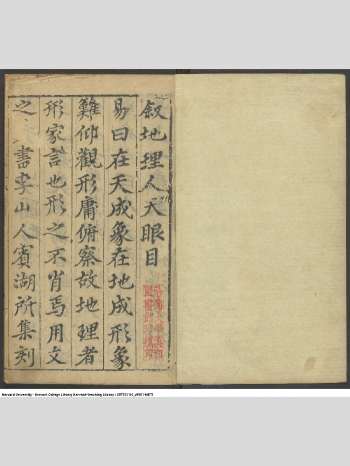 叙地理人天眼目
易曰在天成象在地成形象
難仰觀形庸俯察故地理者
形家言也形之不肖焉用文
之 書李山人賓湖所集刻
Harvard University - Harvard College Library Harvard-Yenching Library